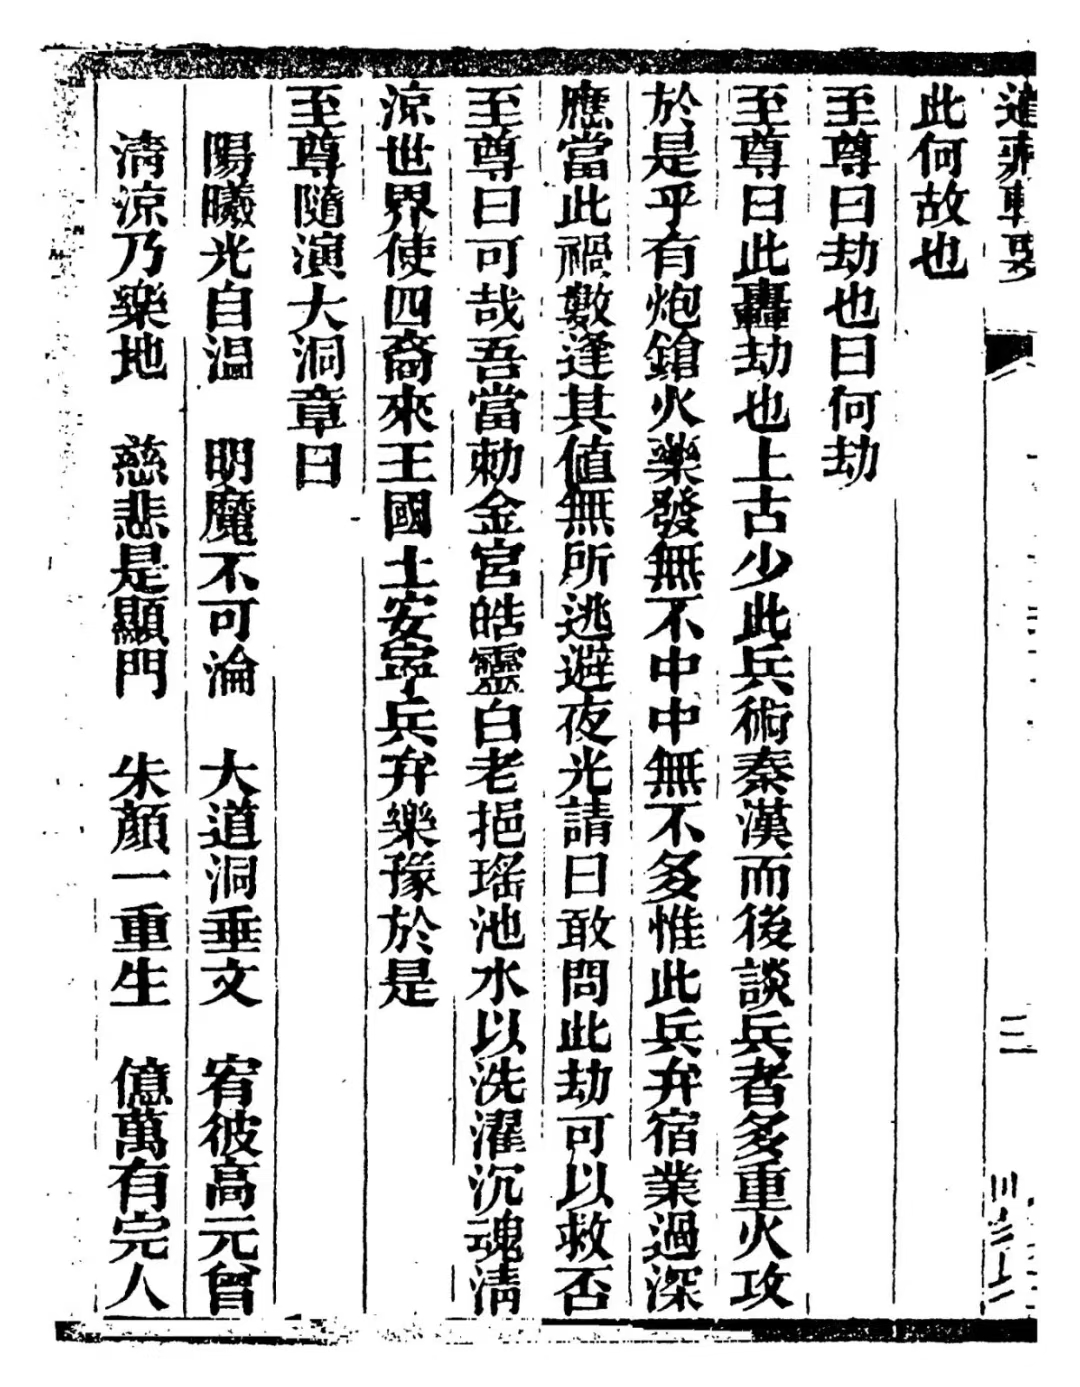 此何故也
至尊曰劫也曰何劫
至尊曰此轟劫也上古少此兵術秦漢而後談兵者多重火攻
於是乎有炮鎗火藥發無不中中無不多惟此兵弁宿業過深
應當此禍數逢其值無所逃避夜光請曰敢問此劫可以救否
至尊曰可哉吾當勅金宮皓靈白老挹瑤池水以洗濯沉魂淸
涼世界使四裔來王國土安寧兵弁樂豫於是
至尊隨演大洞章曰
陽曦光自温 明魔不可淪 大道洞垂文 宥彼高元曾
淸涼乃樂地 慈悲是顯門 朱顏一重生 億萬有完人